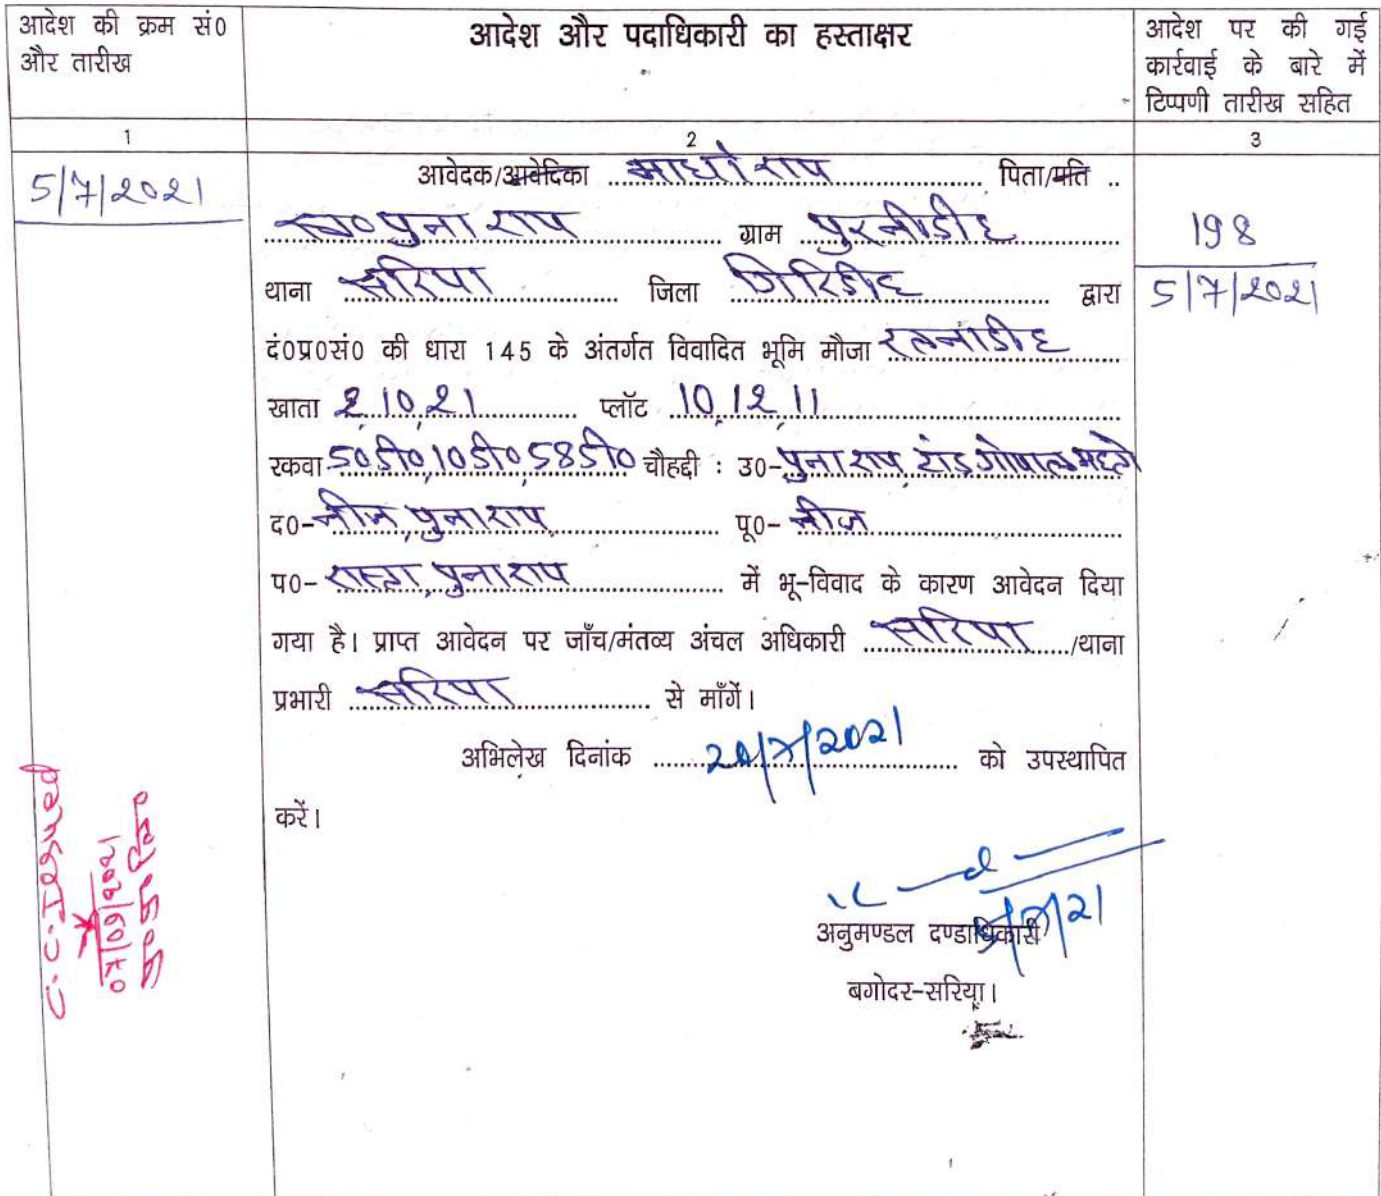 आदेश की क्रम सं0
और तारीख
आदेश और पदाधिकारी का हस्ताक्षर
आदेश पर की गई
कार्रवाई के बारे में
टिप्पणी तारीख सहित
1
2
3
5/7/2021
आवेदक/आवेदिका माघो राय पिता/पति ..
स्व0 पुना राय ग्राम पुरनीडीह
थाना सरिया जिला गिरिडीह द्वारा
198
5/7/2021
दं0प्र0सं0 की धारा 145 के अंतर्गत विवादित भूमि मौजा रतनाडीह
खाता 2, 10, 21 प्लॉट 10, 12, 11
रकवा 50डी0, 10डी0, 58डी0 चौहद्दी : उ0- पुना राय, गोपाल महतो
द0- नीज, पुना राय पू0- नीज
प0- रास्ता, पुना राय में भू-विवाद के कारण आवेदन दिया
गया है। प्राप्त आवेदन पर जाँच/मंतव्य अंचल अधिकारी सरिया /थाना
प्रभारी सरिया से माँगें।
अभिलेख दिनांक 20/7/2021 को उपस्थापित
करें।
अनुमण्डल दण्डाधिकारी
बगोदर-सरिया।
C.C. Issued
07/09/2021